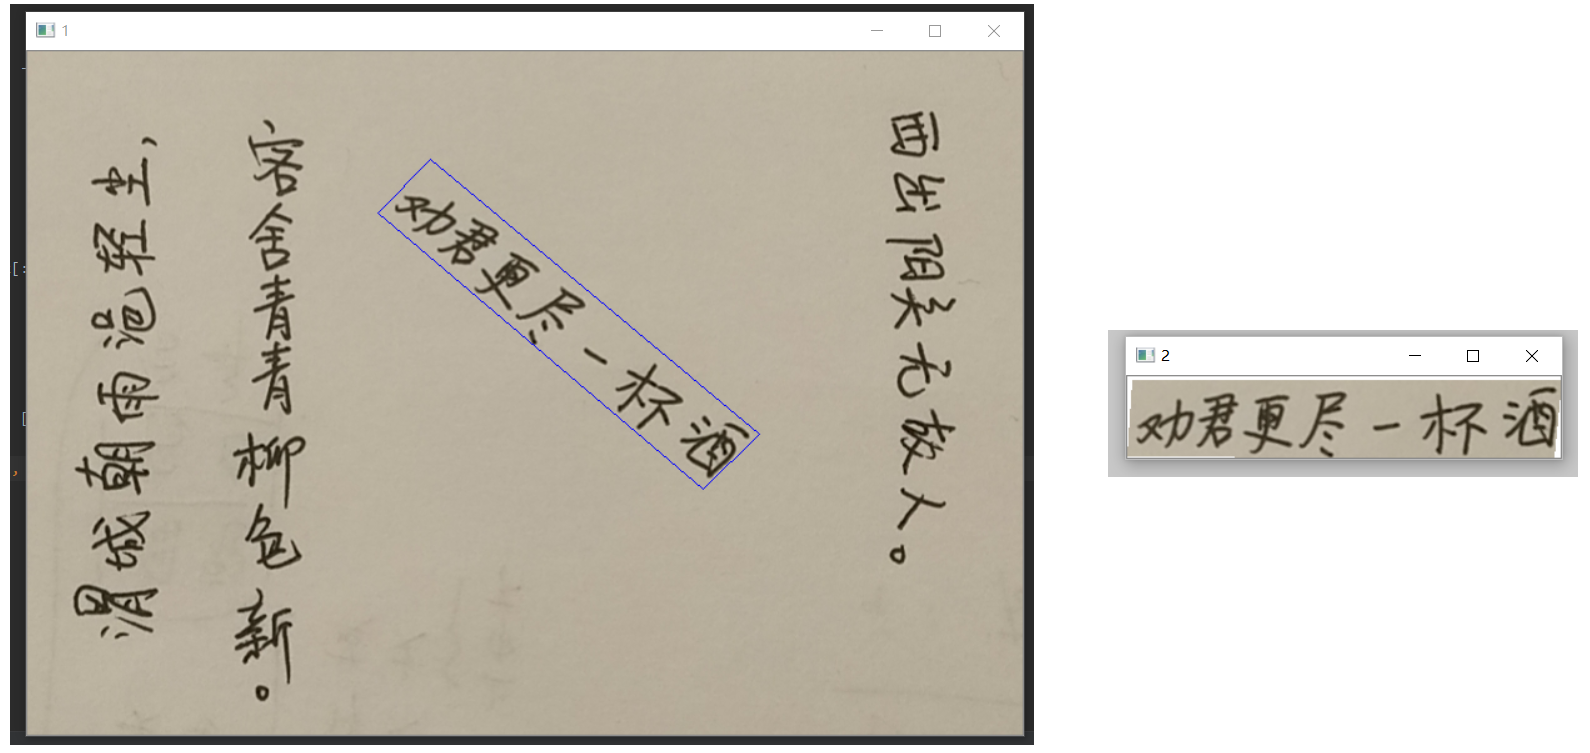 1
渭城朝雨浥轻尘,
客舍青青柳色新。
劝君更尽一杯酒
西出阳关无故人。
[:
[
,
2
劝君更尽一杯酒